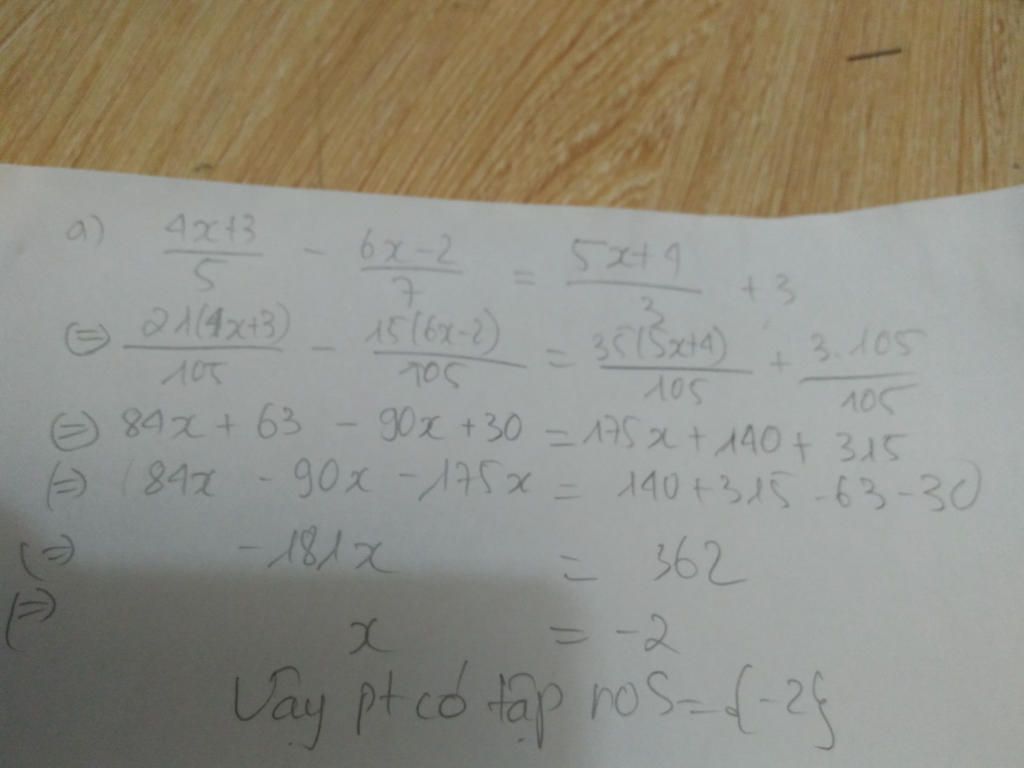 a) \frac{4x+3}{5} - \frac{6x-2}{7} = \frac{5x+4}{3} + 3
(=) \frac{21(4x+3)}{105} - \frac{15(6x-2)}{105} = \frac{35(5x+4)}{105} + \frac{3.105}{105}
(=) 84x + 63 - 90x + 30 = 175x + 140 + 315
(=) 84x - 90x - 175x = 140 + 315 - 63 - 30
(=) -181x = 362
(=) x = -2
Vậy pt có tập no S = {-2}